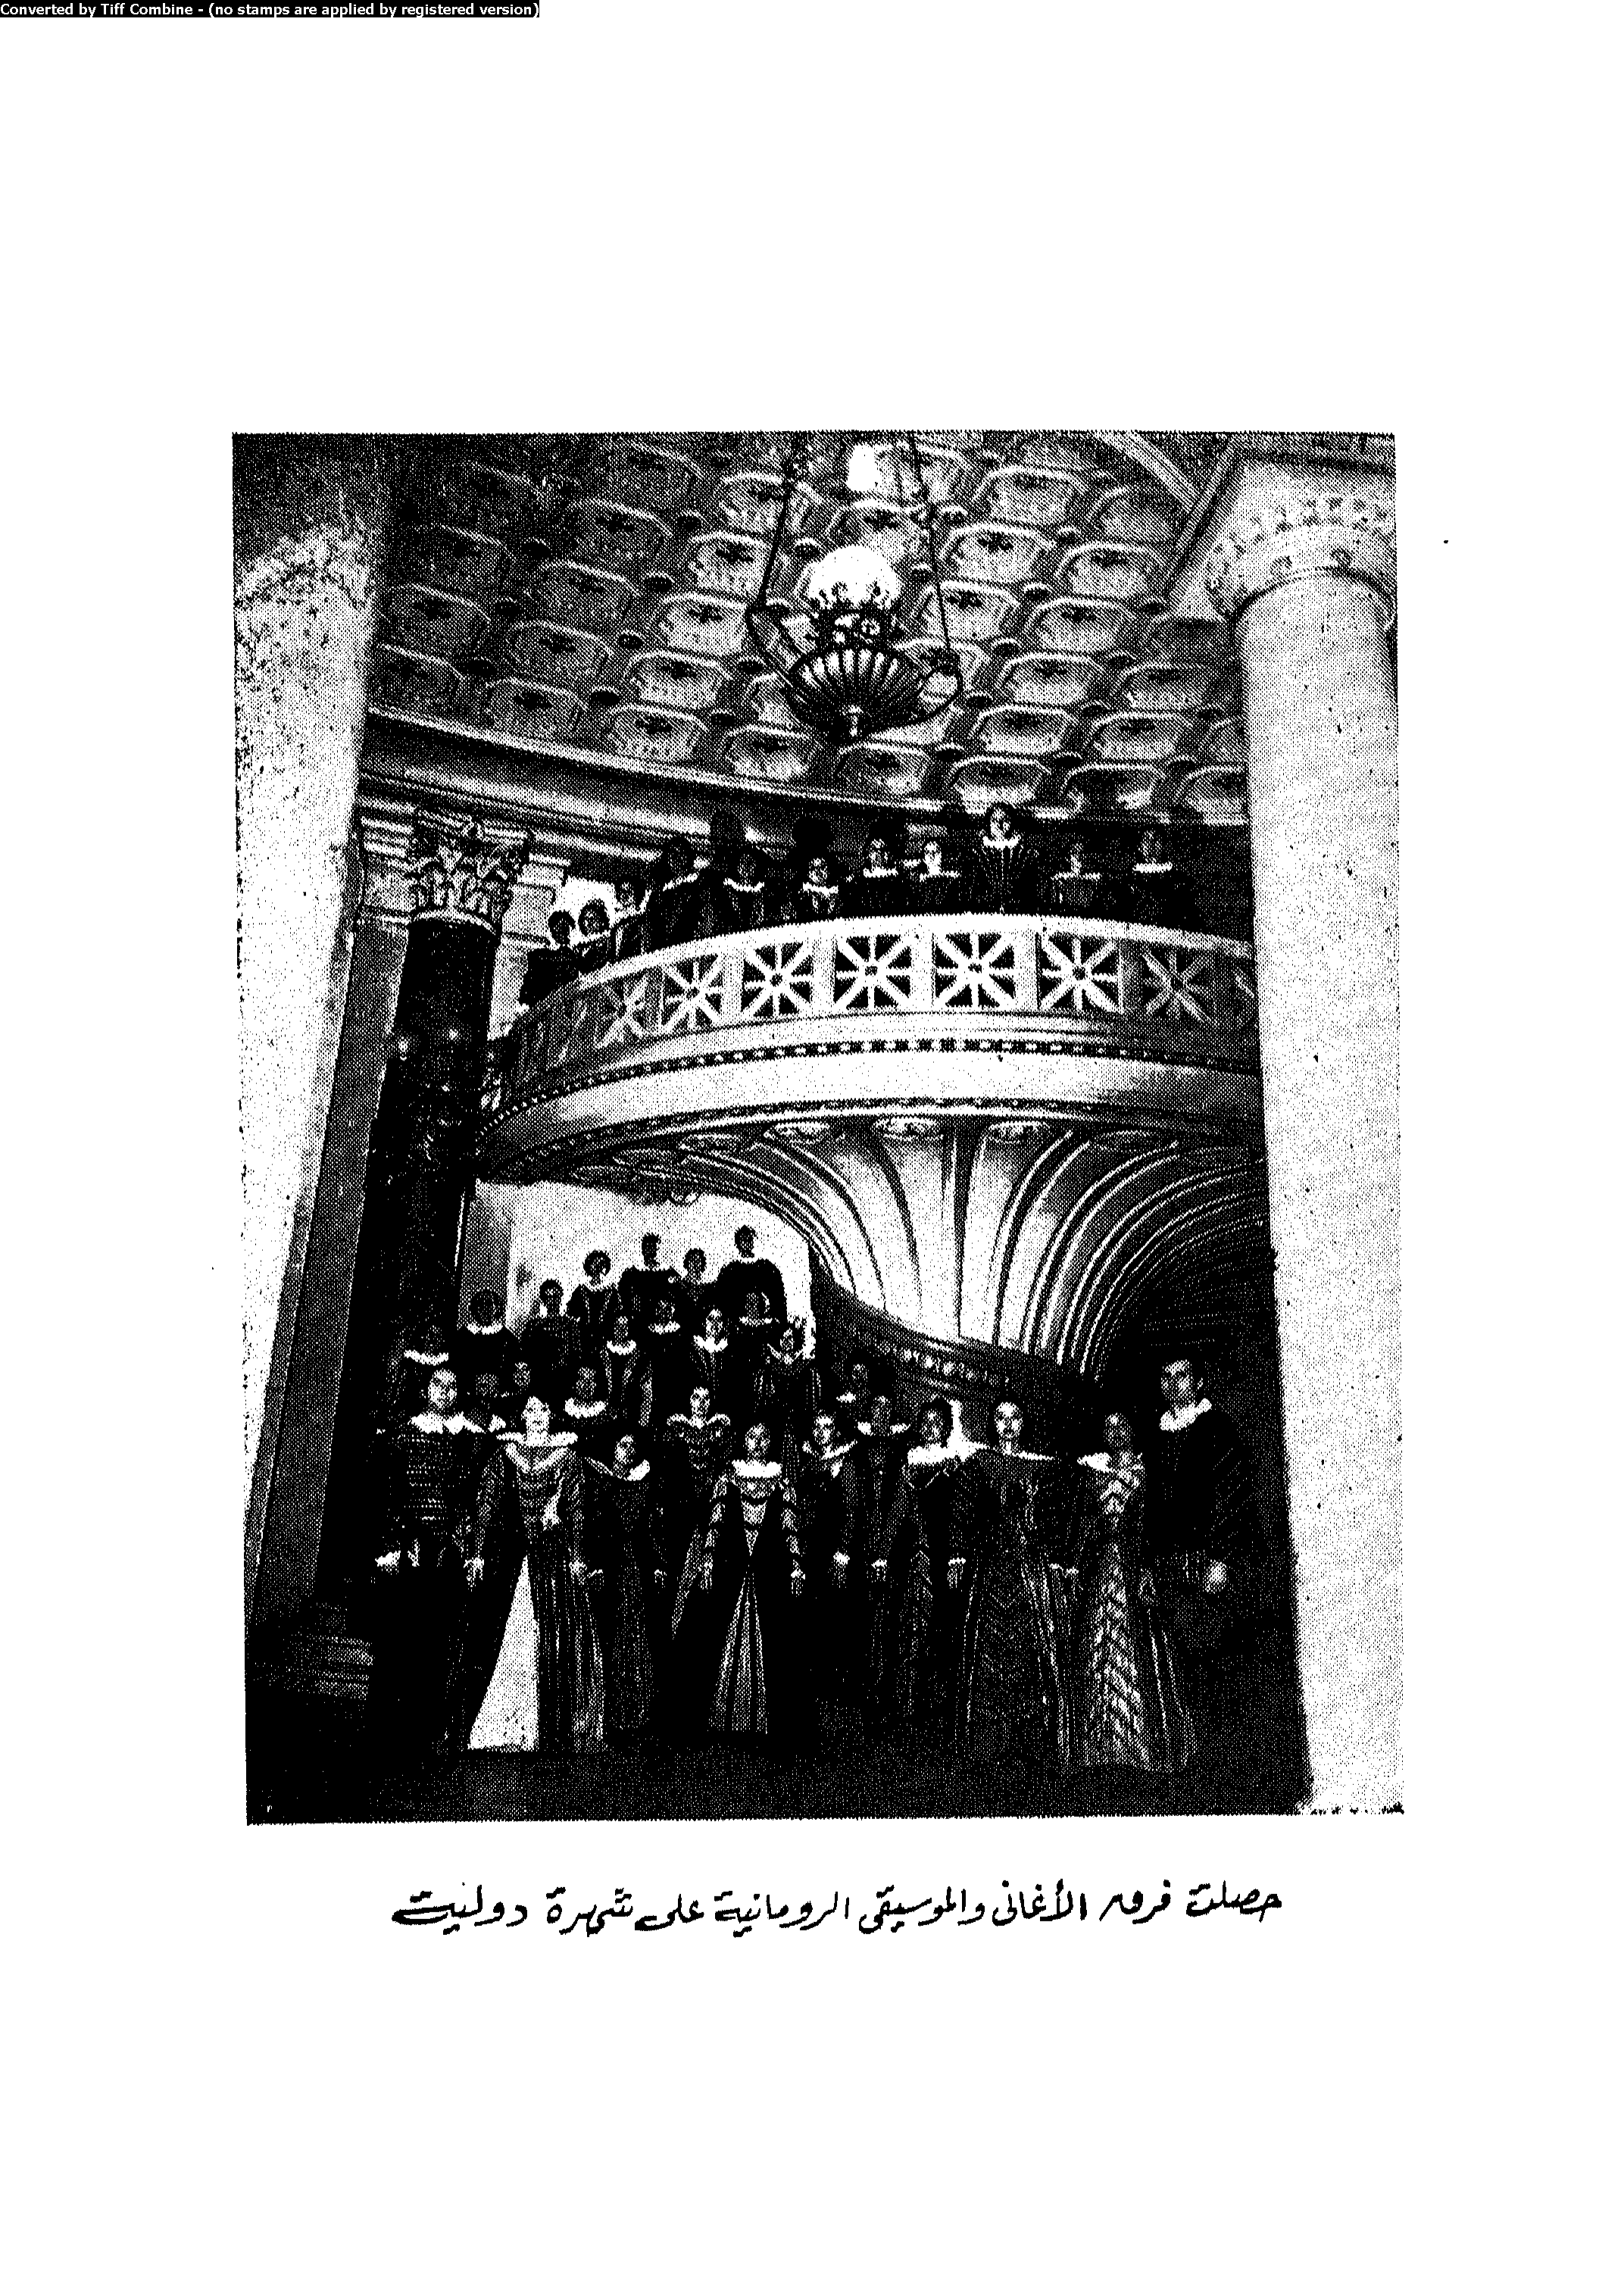 Converted by Tiff Combine - (no stamps are applied by registered version)
حصلت فرق الأغانى والموسيقى الرومانية على شهرة دوليت